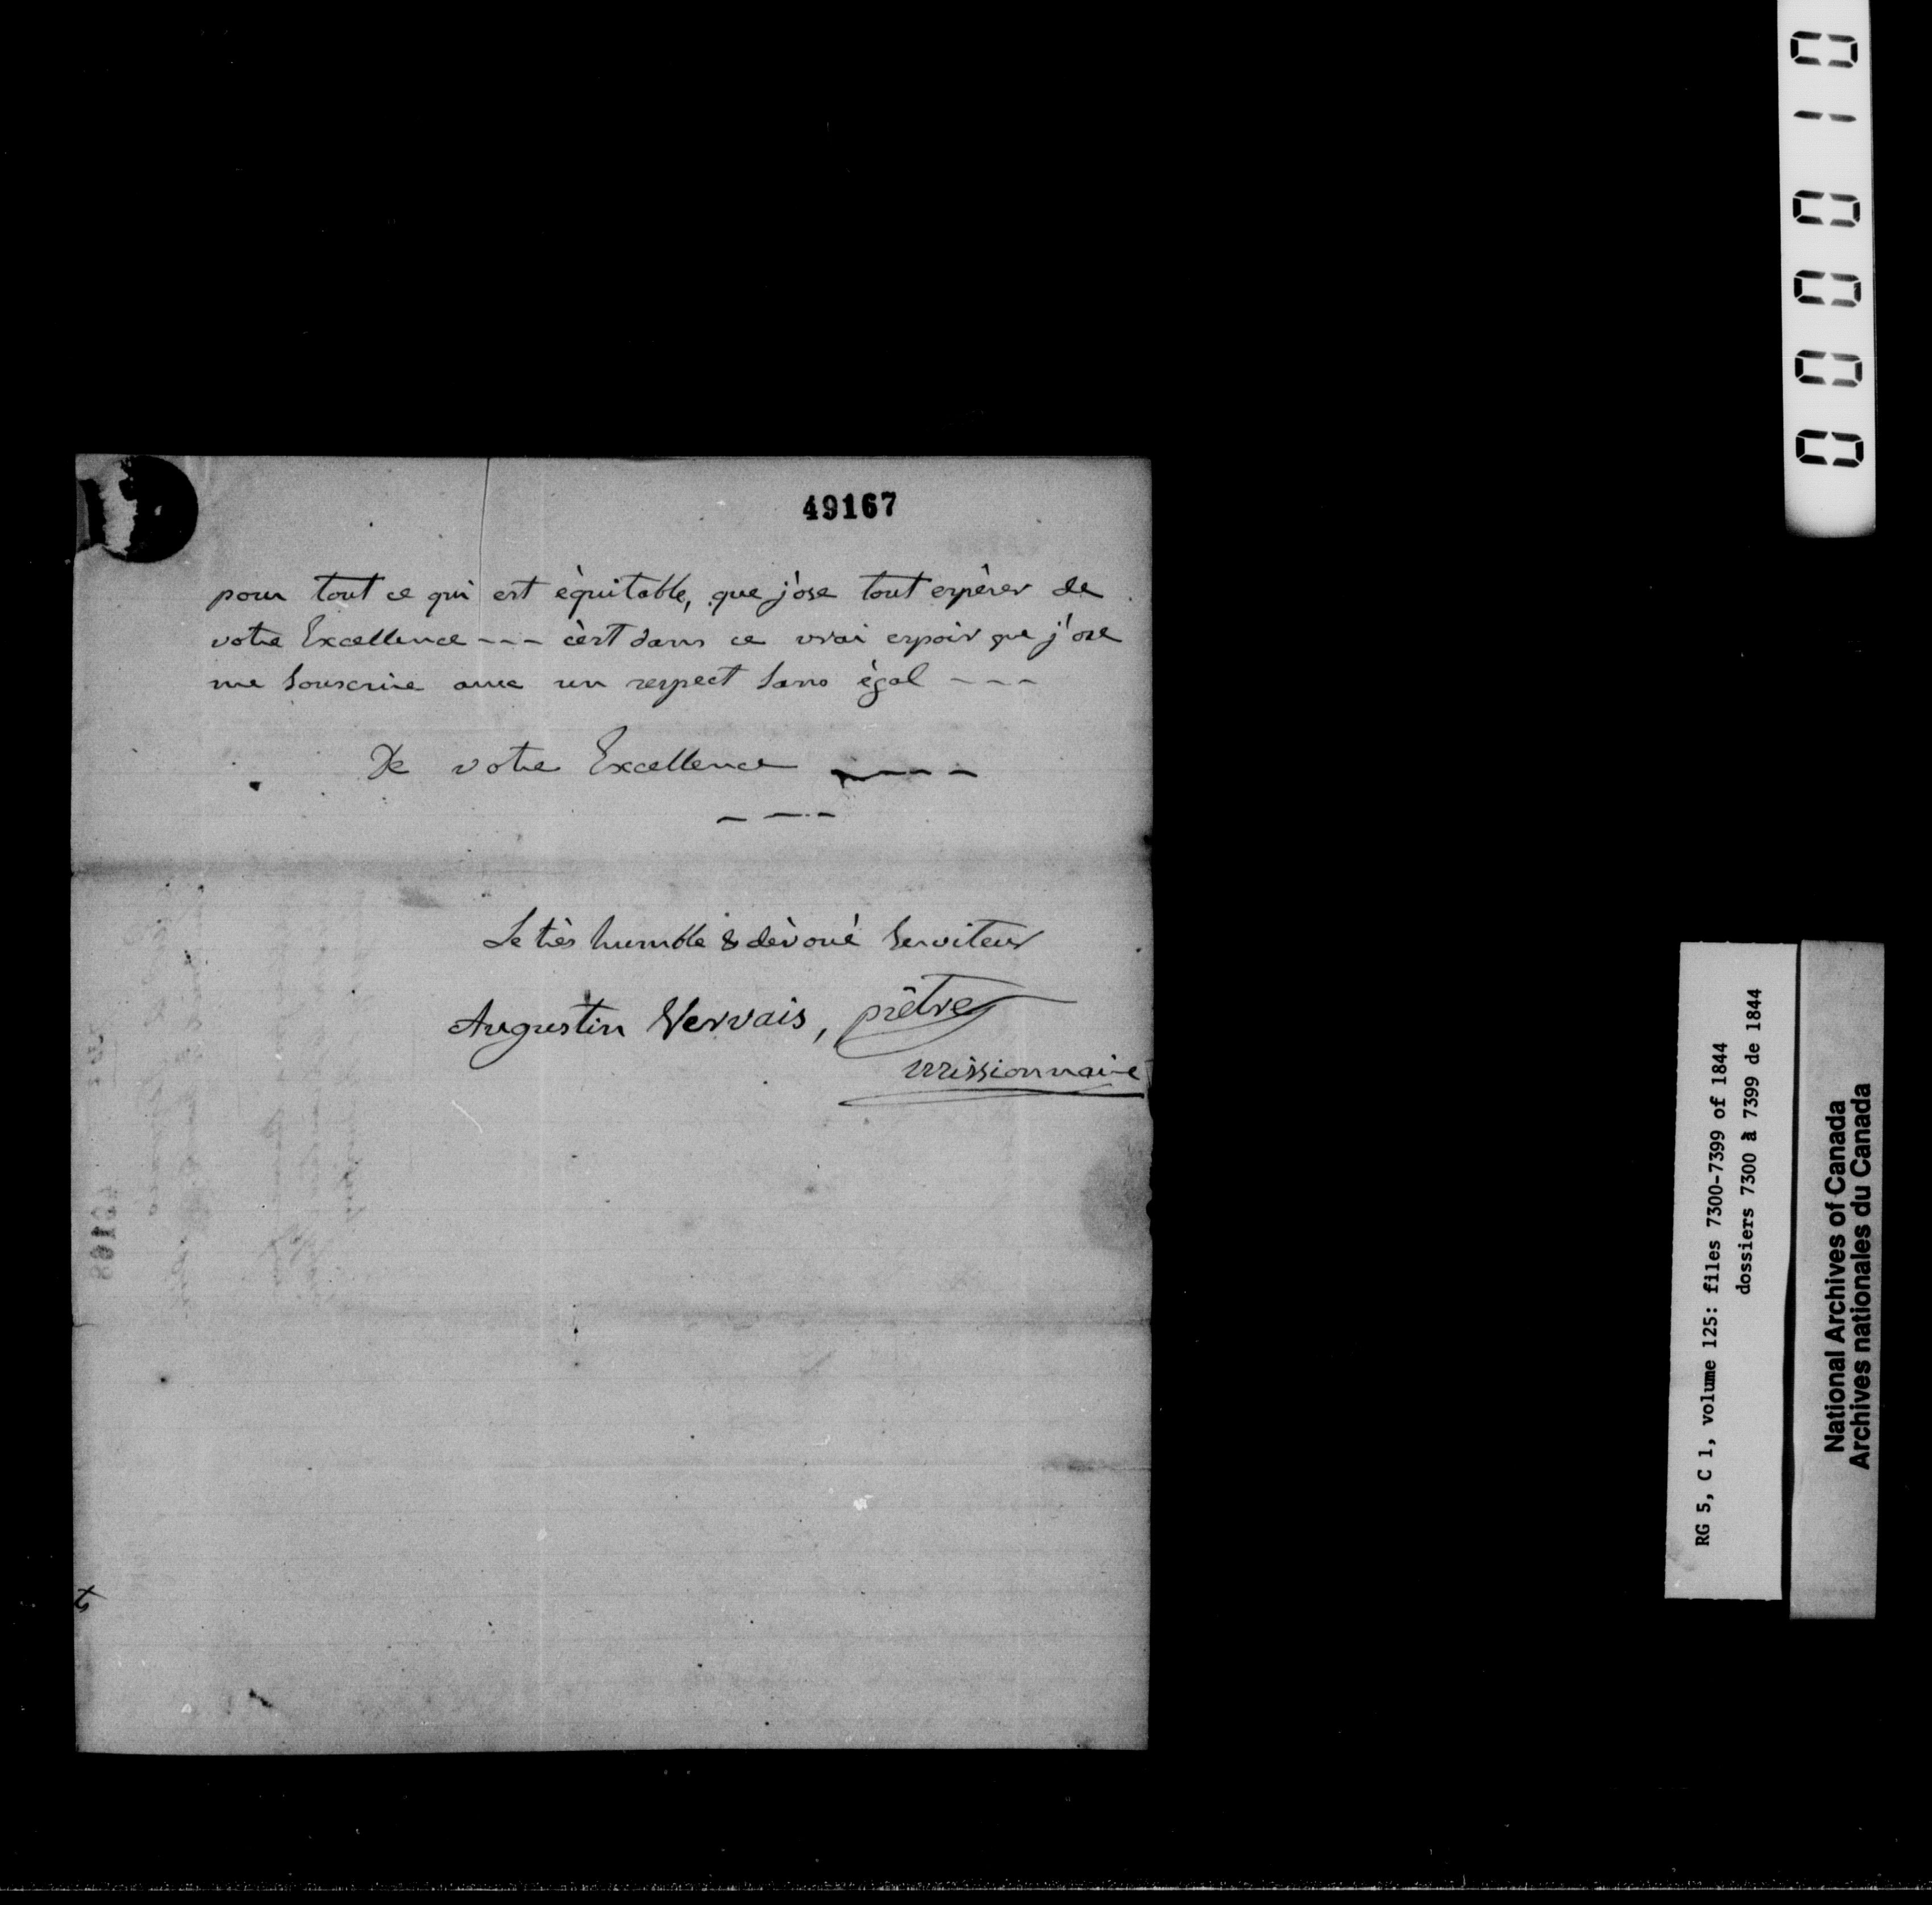 49167
pour tout ce qui est èquitable, que j'ose tout espèrer de
votre Excellence --- c'èst dans ce vrai espoir que j'ose
me Souscrire avec un respect Sans ègal ---
De votre Excellence ----
---
Le très humble & dèvoué Serviteur
Augustin Vervais, prêtre
missionnaire
000010
RG 5, C 1, volume 125: files 7300-7399 of 1844
dossiers 7300 à 7399 de 1844
National Archives of Canada
Archives nationales du Canada